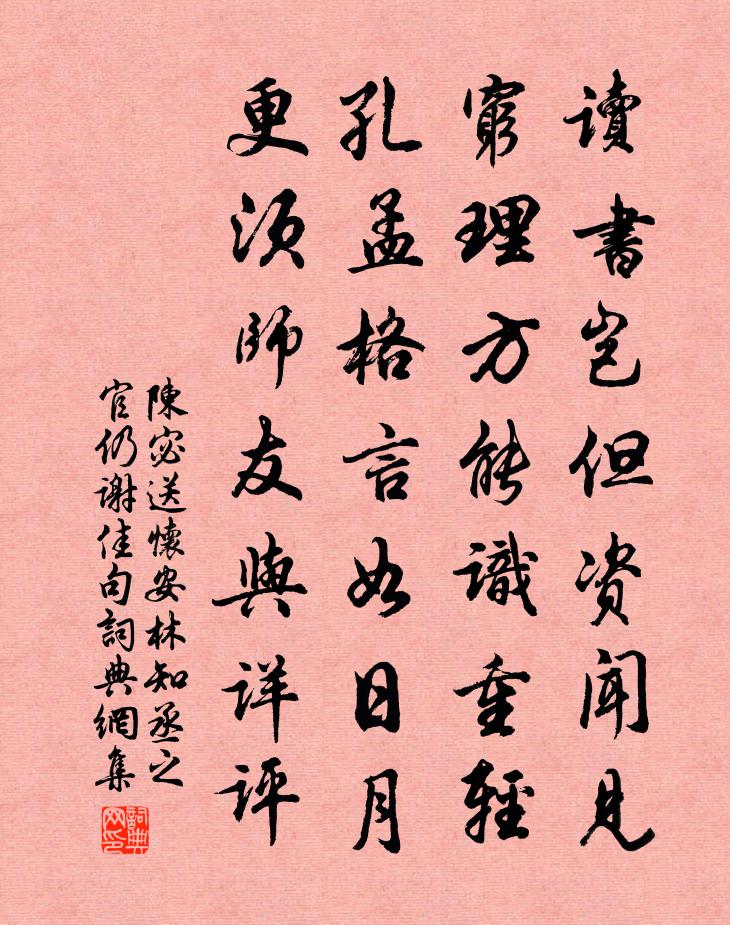 讀書豈但資聞見
窮理方能識重輕
孔孟格言如日月
更須師友與詳評
陳宓送懷安林知丞之
官仍謝佳句詞典網集
詞典網印